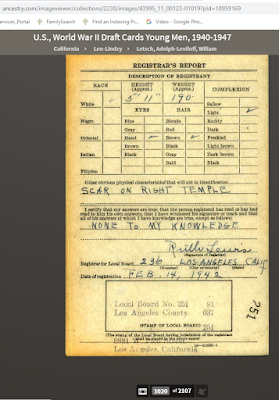 ancestry.com/imageviewer/collections/2238/images/43995_11_00123-01019?pid=18959169
ervices, Portal
FamilySearch
Find an Indexing P...
Obituary
Google
U.S., World War II Draft Cards Young Men, 1940-1947
California > Lee-Lindzy >
REGISTRAR'S REPORT
DESCRIPTION OF REGISTRANT
RACE
HEIGHT (Approx.)
WEIGHT (Approx.)
COMPLEXION
White
5' 11"
190
Sallow
EYES
HAIR
Light
Negro
Blue
Blonde
Ruddy
Gray
Red
Dark
Oriental
Hazel
Brown
Freckled
Brown
Black
Light brown
Indian
Black
Gray
Dark brown
Bald
Black
Filipino
Other obvious physical characteristics that will aid in identification
SCAR ON RIGHT TEMPLE
I certify that my answers are true; that the person registered has read or has had
read to him his own answers; that I have witnessed his signature or mark and that
all of his answers of which I have knowledge are true, except as follows:
NONE TO MY KNOWLEDGE
Ruth Lewis
(Signature of registrar)
Registrar for Local Board 236 LOS ANGELES CALIF
Date of registration FEB. 14, 1942
Local Board No. 251 91
Los Angeles County 037
251
STAMP OF LOCAL BOARD
(The stamp of the Local Board having jurisdiction of the registrant
shall be placed in the above space)
Los Angeles, California
1020 of 2107